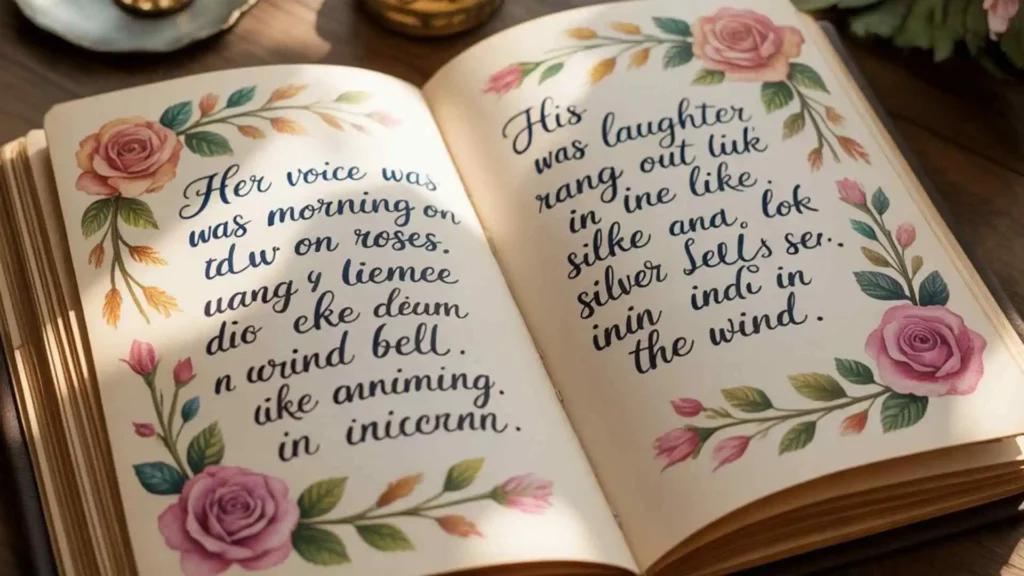 Her voice was
was morning on
tdw on roses.
uang y liemee
dio eke deum
n wrind bell.
like anniming.
in inicernn.
His
was laughter
rang out liuk
in ine like.
silke and, lok
silver Sells ser..
inin indi in
the wind.